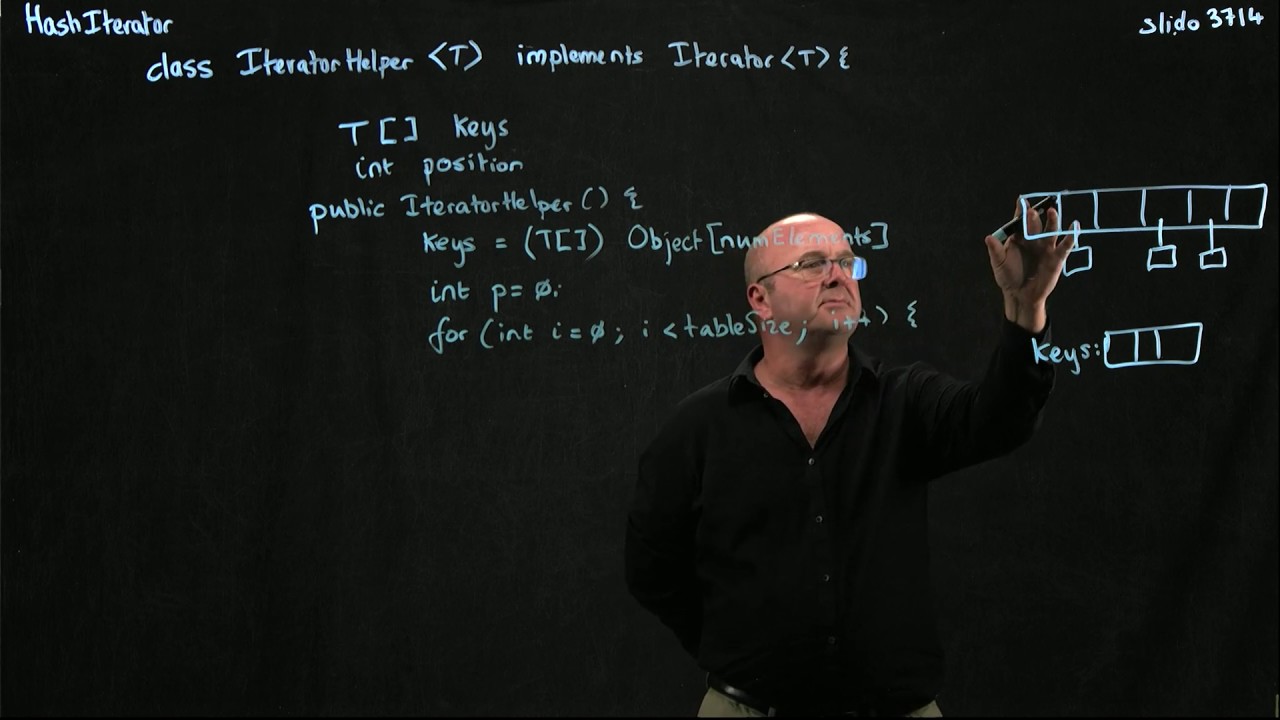 HashIterator
slido 3714
class IteratorHelper <T> implements Iterator<T> {
T[] keys
int position
public IteratorHelper() {
keys = (T[]) Object[numElements]
int p=0;
for (int i=0; i<tableSize; i++) {
keys: